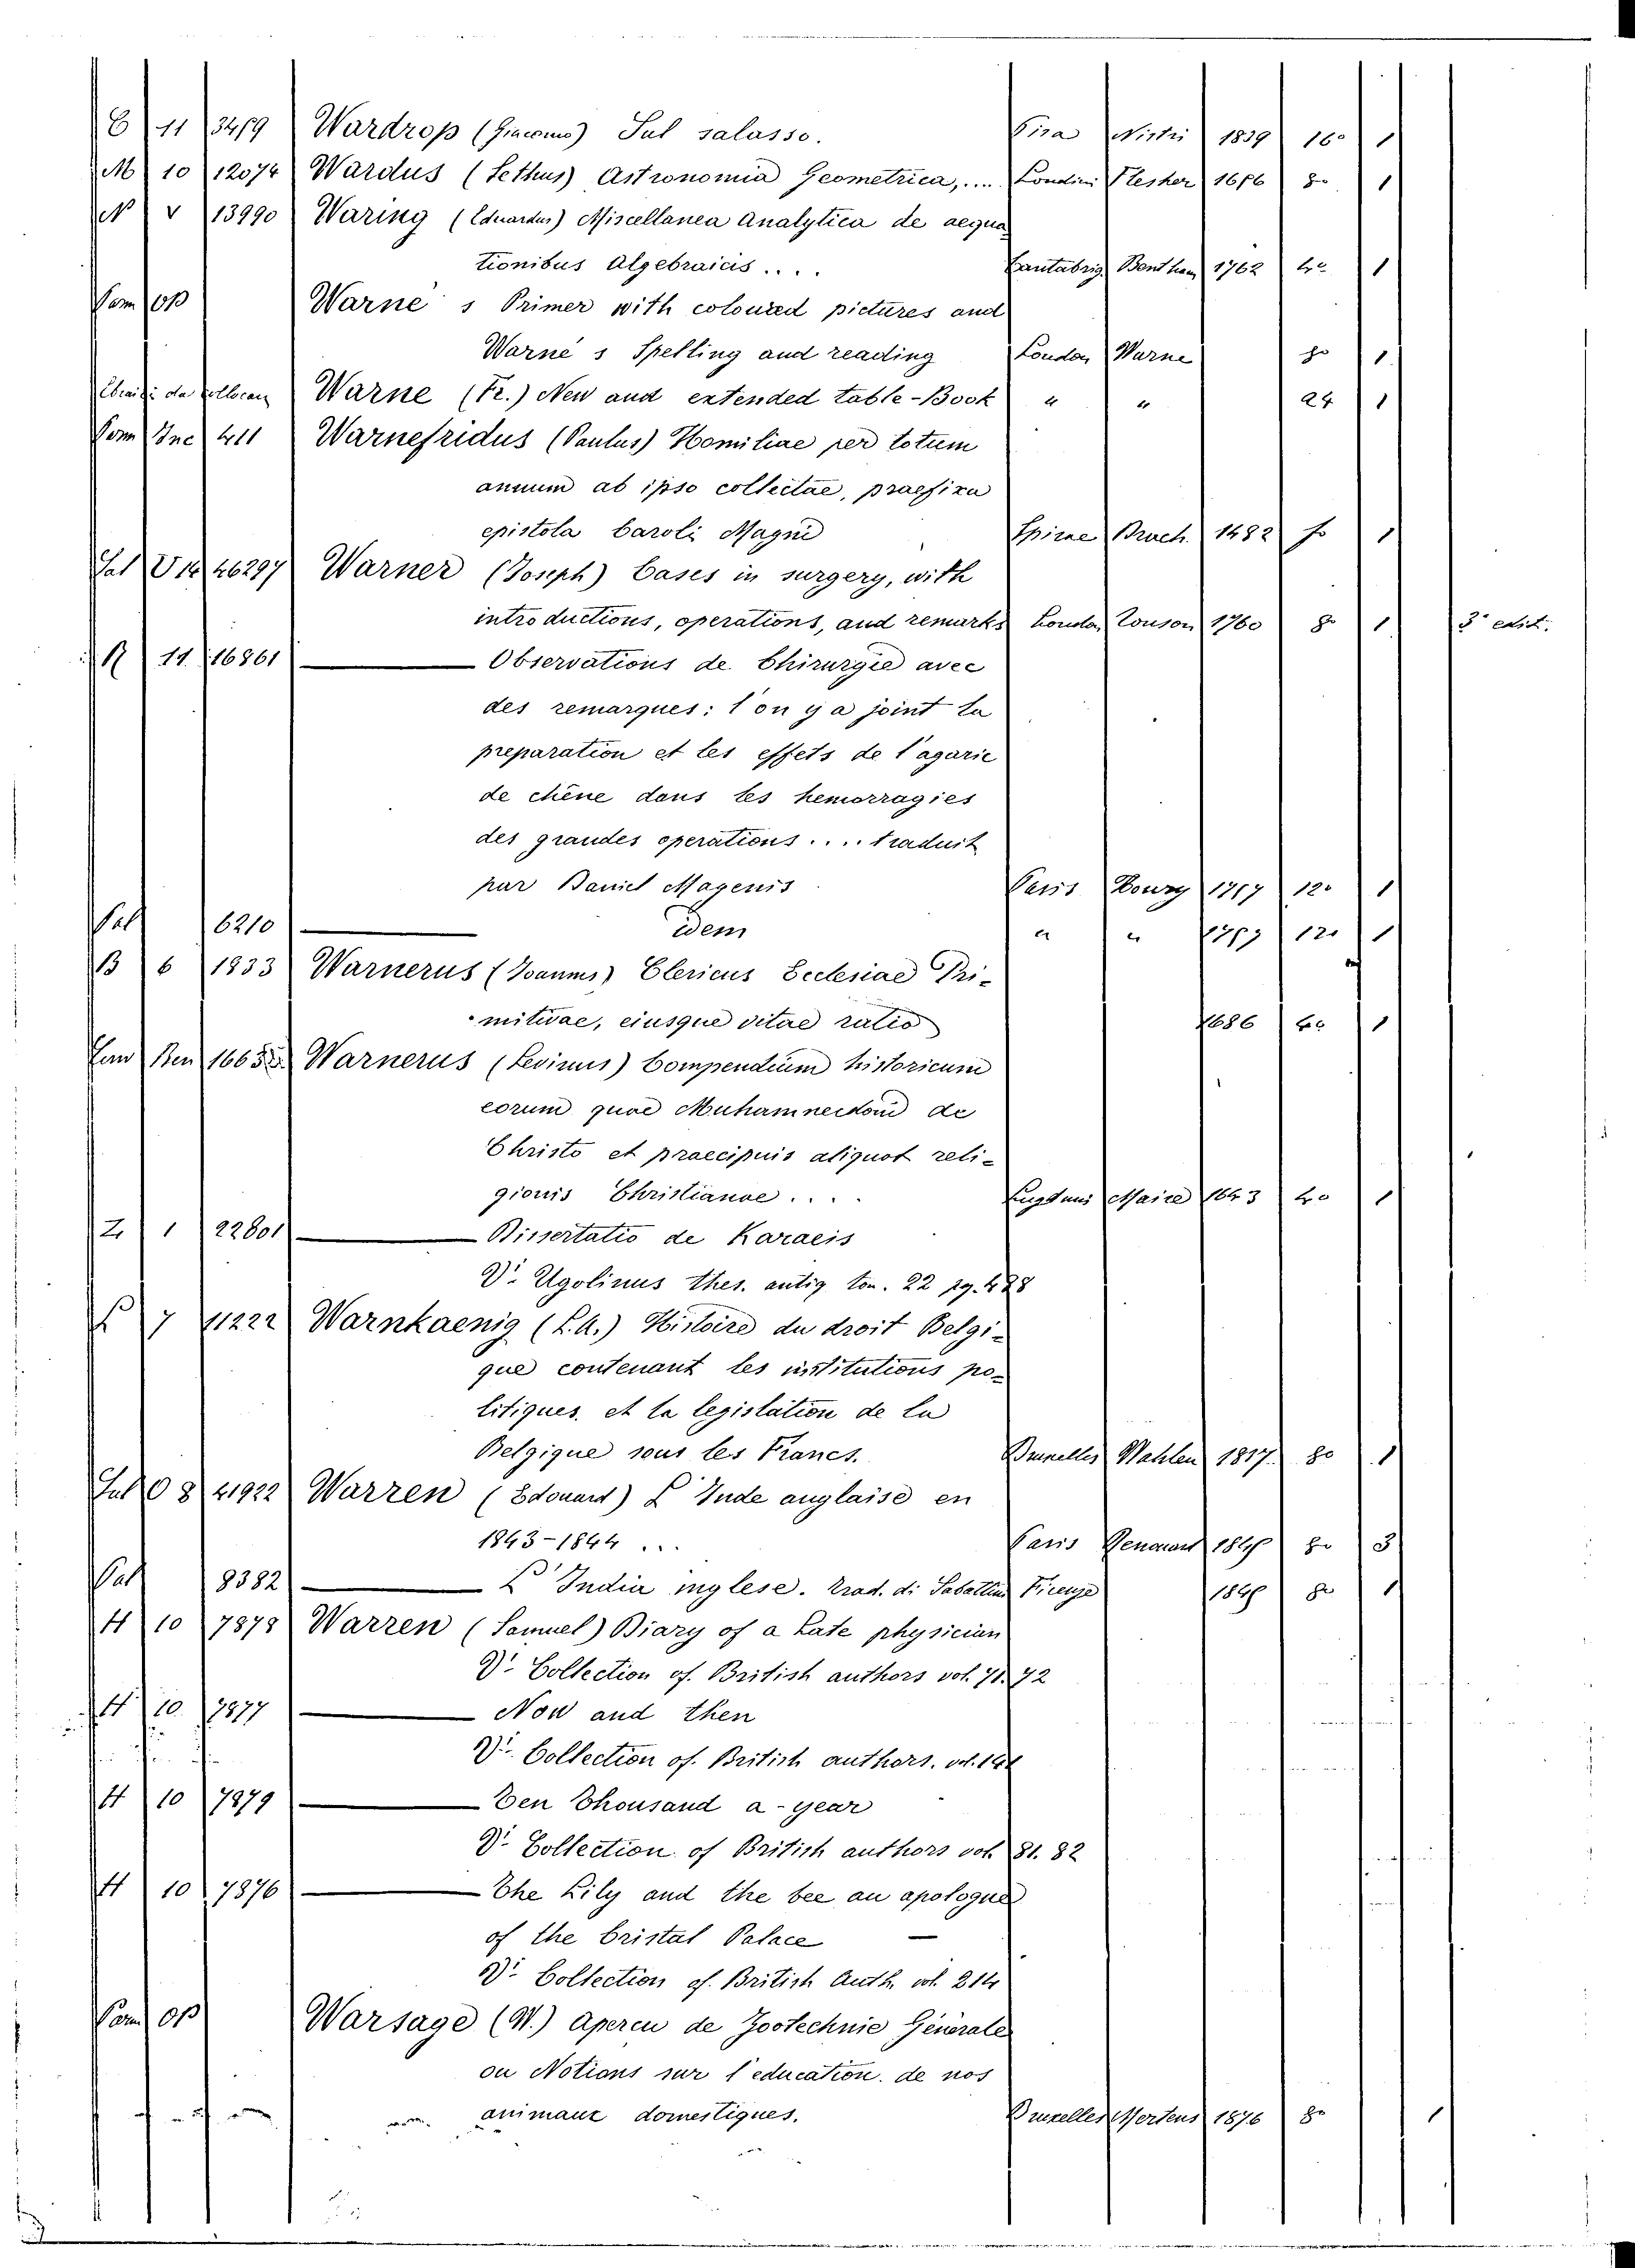 E 11 3459 Wardrop (Giacomo) Sul salasso. Pisa Nistri 1839 16° 1
M 10 12074 Wardus (Sethus) Astronomia Geometrica, .... Londini Flesher 1656 8° 1
N V 13990 Waring (Eduardus) Miscellanea Analytica de aequa
tionibus Algebraicis .... Cantabrig. Bentham 1762 4° 1
Rom op Warne's Primer with coloured pictures and
Warne's Spelling and reading London Warne 8° 1
da collocare Warne (Fr.) New and extended table-Book " " 24 1
Rom Inc 411 Warnefridus (Paulus) Homiliae per totum
annum ab ipso collectae, praefixa
epistola Caroli Magni Spirae Drach. 1482 fo 1
Sal V 14 46297 Warner (Joseph) Cases in surgery, with
introductions, operations, and remarks London Tonson 1760 8° 1 3° edit.
R 11 16861 — Observations de Chirurgie avec
des remarques: l'on y a joint la
preparation et les effets de l'agaric
de chêne dans les hemorragies
des grandes operations .... traduit
par Daniel Magenis Paris Boury 1757 12° 1
Sal 6210 — idem " " 1757 12° 1
B 6 1833 Warnerus (Joannes) Clericus Ecclesiae Pri-
mitivae, eiusque vitae ratio 1686 4° 1
Ben 1665 Warnerus (Levinus) Compendium historicum
eorum quae Muhammedani de
Christo et praecipuis aliquot reli-
gionis Christianae .... Lugduni Maire 1643 4° 1
Z 1 22801 — Dissertatio de Karaeis
Vi. Ugolinus thes. antiq. tom. 22 pg. 488
7 11222 Warnkaenig (L.A.) Histoire du droit Belgi-
que contenant les institutions po-
litiques, et la legislation de la
Belgique sous les Francs. Bruxelles Wahlen 1837 8° 1
Sal O 8 41922 Warren (Edouard) L'Inde anglaise en
1843-1844 ... Paris 1845 8° 3
Sal 8382 — L'India inglese. trad. di Sabattini Firenze 1845 8° 1
H 10 7878 Warren (Samuel) Diary of a Late physician
Vi. Collection of. British authors vol. 71. 72
H 10 7877 — Now and then
Vi. Collection of. British authors. vol. 141
H 10 7879 — Ten Thousand a-year
Vi. Collection of British authors vol. 81. 82
H 10 7876 — The Lily and the bee an apologue
of the Cristal Palace
Vi. Collection of. British Auth. vol. 214
Rom op Warsage (W.) Apercu de Zootechnie Génerale
ou Notions sur l'education. de nos
animaux domestiques. Bruxelles Mertens 1876 8° 1